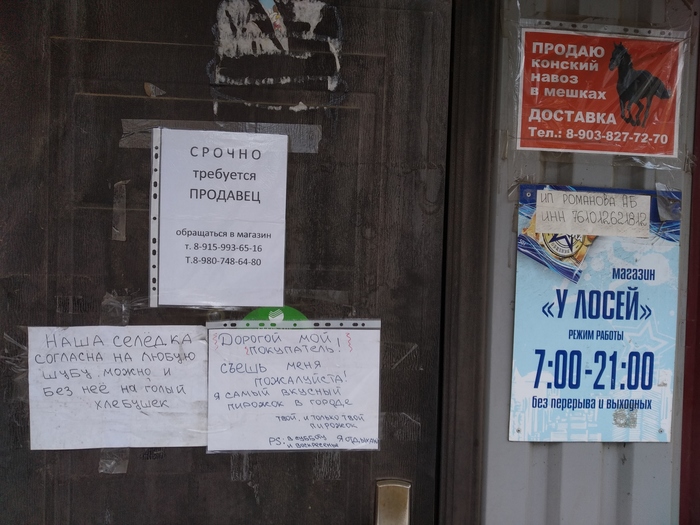 СРОЧНО
требуется
ПРОДАВЕЦ
обращаться в магазин
т. 8-915-993-65-16
Т.8-980-748-64-80
НАША СЕЛЁДКА
СОГЛАСНА НА ЛЮБУЮ
ШУБУ МОЖНО И
БЕЗ НЕЁ НА ГОЛЫЙ
ХЛЕБУШЕК
ДОРОГОЙ МОЙ
ПОКУПАТЕЛЬ!
СЪЕШЬ МЕНЯ
ПОЖАЛУЙСТА!
Я САМЫЙ ВКУСНЫЙ
ПИРОЖОК В ГОРОДЕ
ТВОЙ, И ТОЛЬКО ТВОЙ
ПИРОЖОК
PS: В СУББОТУ Я ОТДЫХАЮ
И ВОСКРЕСЕНЬЕ
ПРОДАЮ
КОНСКИЙ
НАВОЗ
В МЕШКАХ
ДОСТАВКА
Тел.: 8-903-827-72-70
ИП РОМАНОВА АБ
ИНН 761012621812
МАГАЗИН
«У ЛОСЕЙ»
РЕЖИМ РАБОТЫ
7:00-21:00
без перерыва и выходных